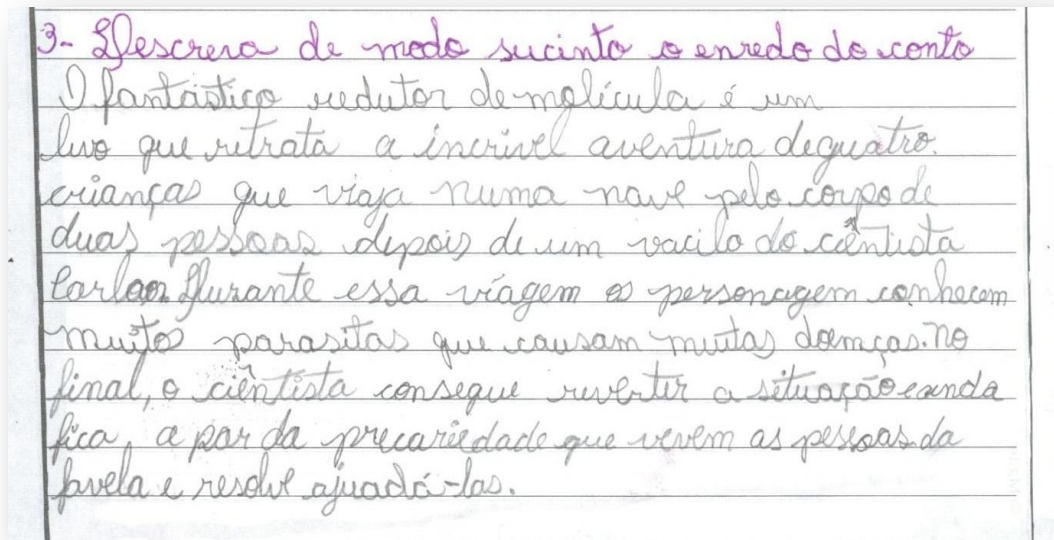 3- Descreva de modo sucinto o enredo do conto
O fantástico redutor de molícula é um
livo que retrata a incrivel aventura de quatro
crianças que viaja numa nave pelo corpo de
duas pessoas depois de um vacilo do ciêntista
Carlão. Durante essa viagem os personagem conhecem
muitos parasitas que causam muitas doenças. No
final, o ciêntista consegue reverter a situação e ainda
fica, a par da precariedade que vivem as pessoas da
favela e resolve ajuadá-las.